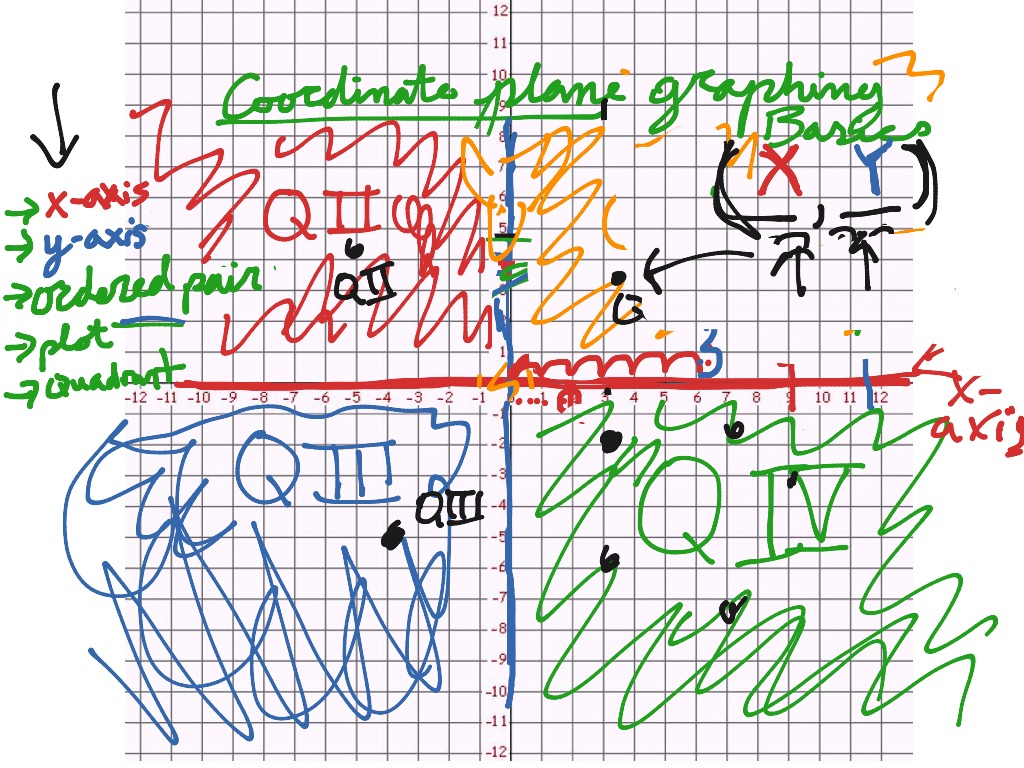 12
11
10
Coordinate plane graphing
9
Basics
8
7
(X, Y)
x-axis
Q II
y-axis
5
QII
ordered pair
plot
1
quadrant
-12 -11 -10 -9 -8 -7 -6 -5 -4 -3 -2 -1 2 3 4 5 6 7 8 9 10 11 12
x-
axis
-1
-2
Q III
Q IV
-3
QIII
-4
-5
-6
-7
-8
-9
-10
-11
-12